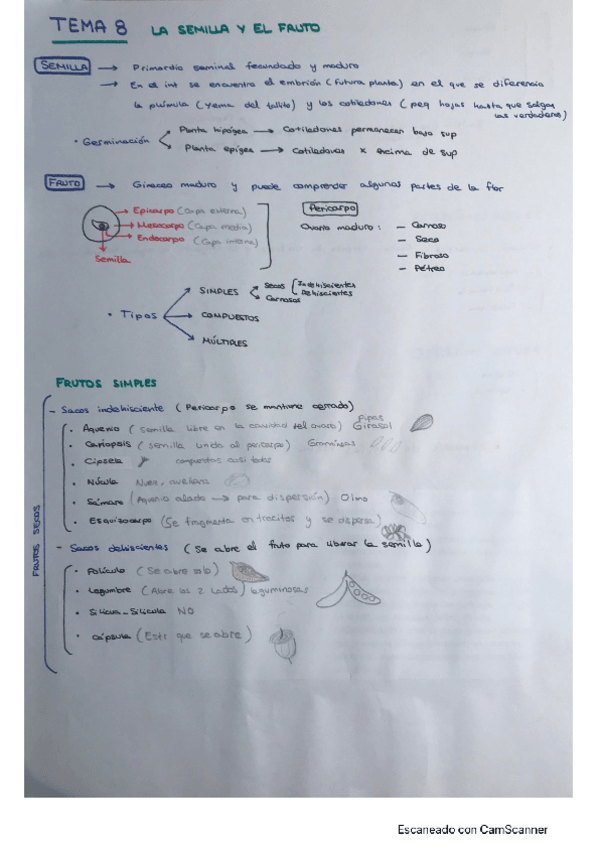 TEMA 8 LA SEMILLA Y EL FRUTO
SEMILLA → Primordio seminal fecundado y maduro
→ En el int se encuentra el embrión (futura planta) en el que se diferencia
la plúmula (yema del tallito) y los cotiledones (peq hojas hasta que salgan
las verdaderas)
• Germinación
Planta hipógea → Cotiledones permanecen bajo sup
Planta epígea → Cotiledones x encima de sup
FRUTO → Gineceo maduro y puede comprender algunas partes de la flor
Epicarpo (Capa externa)
Mesocarpo (Capa media)
Endocarpo (Capa interna)
Semilla
Pericarpo
Ovario maduro: – Carnoso
– Seco
– Fibroso
– Pétreo
• Tipos
SIMPLES
Secos
Indehiscientes
Dehiscientes
Carnosos
COMPUESTOS
MÚLTIPLES
FRUTOS SIMPLES
FRUTOS SECOS
– Secos indehisciente (Pericarpo se mantiene cerrado)
• Aquenio (semilla libre en la cavidad del ovario) Pipas Girasol
• Cariopsis (semilla unida al pericarpo) Gramíneas
• Cipsela compuestas casi todas
• Núcula Nuez, avellana
• Sámara (Aquenio alado → para dispersión) Olmo
• Esquizocarpo (Se fragmenta en trocitos y se dispersa)
– Secos dehiscientes (Se abre el fruto para liberar la semilla)
• Folículo (Se abre
• Legumbre (Abre al 2 lados) leguminosas
• Silicua-Silícula NO
• Cápsula (Estr que se abre)
Escaneado con CamScanner